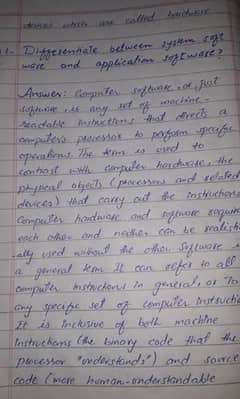 devices which are called hardware
1. Differentiate between system soft
ware and application software?
Answer: Computer software, or just
software is any set of machine-
readable instructions that directs a
computer's processor to perform specific
operations. The term is used to
contrast with computer hardware, the
physical objects (processors and related
devices) that carry out the instructions
Computer hardware and software require
each other and neither can be realistic
-ally used without the other. Software is
a general term. It can refer to all
computer instructions in general, or To
any specific set of computer instructio
It is inclusive of both machine
Instructions (the binary code that the
processor "understands") and source
code (more human-understandable